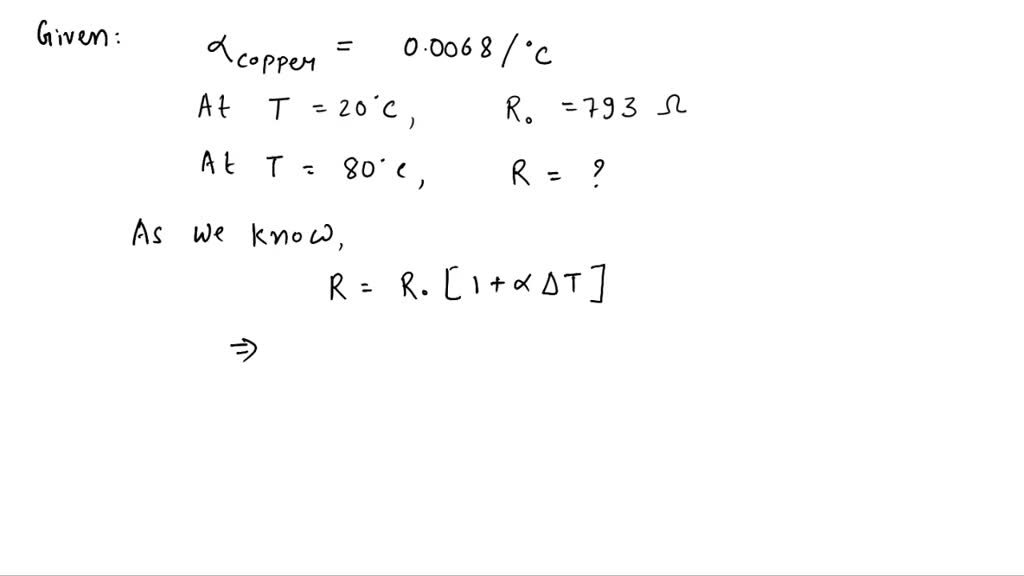 Given: α copper = 0.0068/°C
At T = 20°C, R₀ = 793 Ω
At T = 80°C, R = ?
As we know,
R = R₀ [1 + α ΔT]
⇒